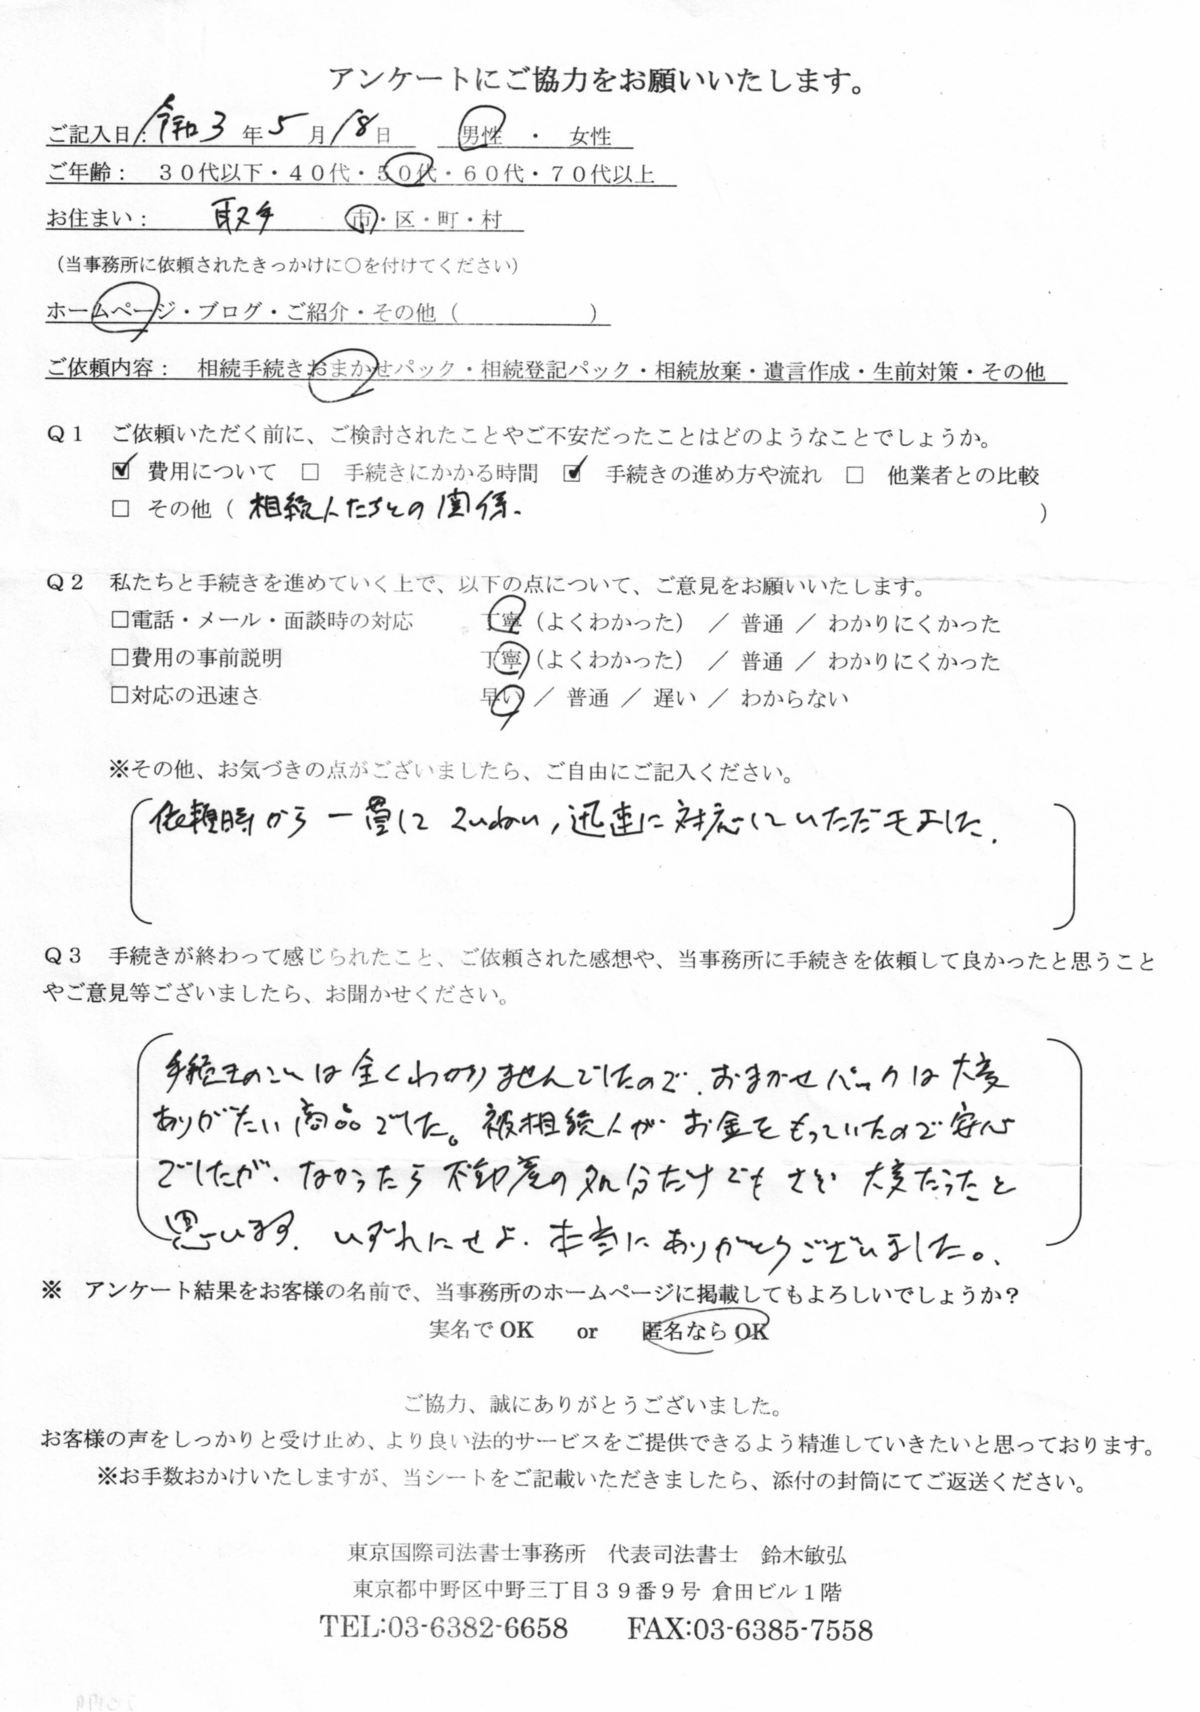 アンケートにご協力をお願いいたします。
ご記入日：令和3年5月18日　男性・女性
ご年齢：　３０代以下・４０代・５０代・６０代・７０代以上
お住まい：　取手　市・区・町・村
（当事務所に依頼されたきっかけに○を付けてください）
ホームページ・ブログ・ご紹介・その他（　　　　　　）
ご依頼内容：　相続手続きおまかせパック・相続登記パック・相続放棄・遺言作成・生前対策・その他
Ｑ１　ご依頼いただく前に、ご検討されたことやご不安だったことはどのようなことでしょうか。
☑ 費用について　□　手続きにかかる時間　☑　手続きの進め方や流れ　□　他業者との比較
□ その他（ 相続人たちとの関係.　　　）
Ｑ２　私たちと手続きを進めていく上で、以下の点について、ご意見をお願いいたします。
□電話・メール・面談時の対応　　丁寧（よくわかった）／ 普通 ／ わかりにくかった
□費用の事前説明　　丁寧（よくわかった）／ 普通 ／ わかりにくかった
□対応の迅速さ　　早い ／ 普通 ／ 遅い ／ わからない
※その他、お気づきの点がございましたら、ご自由にご記入ください。
依頼時から一貫してていねい, 迅速に対応していただきました.
Ｑ３　手続きが終わって感じられたこと、ご依頼された感想や、当事務所に手続きを依頼して良かったと思うこと
やご意見等ございましたら、お聞かせください。
手続きのことは全くわかりませんでしたので、おまかせパックは大変
ありがたい商品でした。被相続人が、お金をもっていたので安心
でしたが、なかったら不動産の処分だけでもさぞ大変だったと
思います. いずれにせよ、本当にありがとうございました。
※　アンケート結果をお客様の名前で、当事務所のホームページに掲載してもよろしいでしょうか？
実名で OK　　or　　匿名なら OK
ご協力、誠にありがとうございました。
お客様の声をしっかりと受け止め、より良い法的サービスをご提供できるよう精進していきたいと思っております。
※お手数おかけいたしますが、当シートをご記載いただきましたら、添付の封筒にてご返送ください。
東京国際司法書士事務所　代表司法書士　鈴木敏弘
東京都中野区中野三丁目３９番９号 倉田ビル１階
TEL:03-6382-6658　　FAX:03-6385-7558